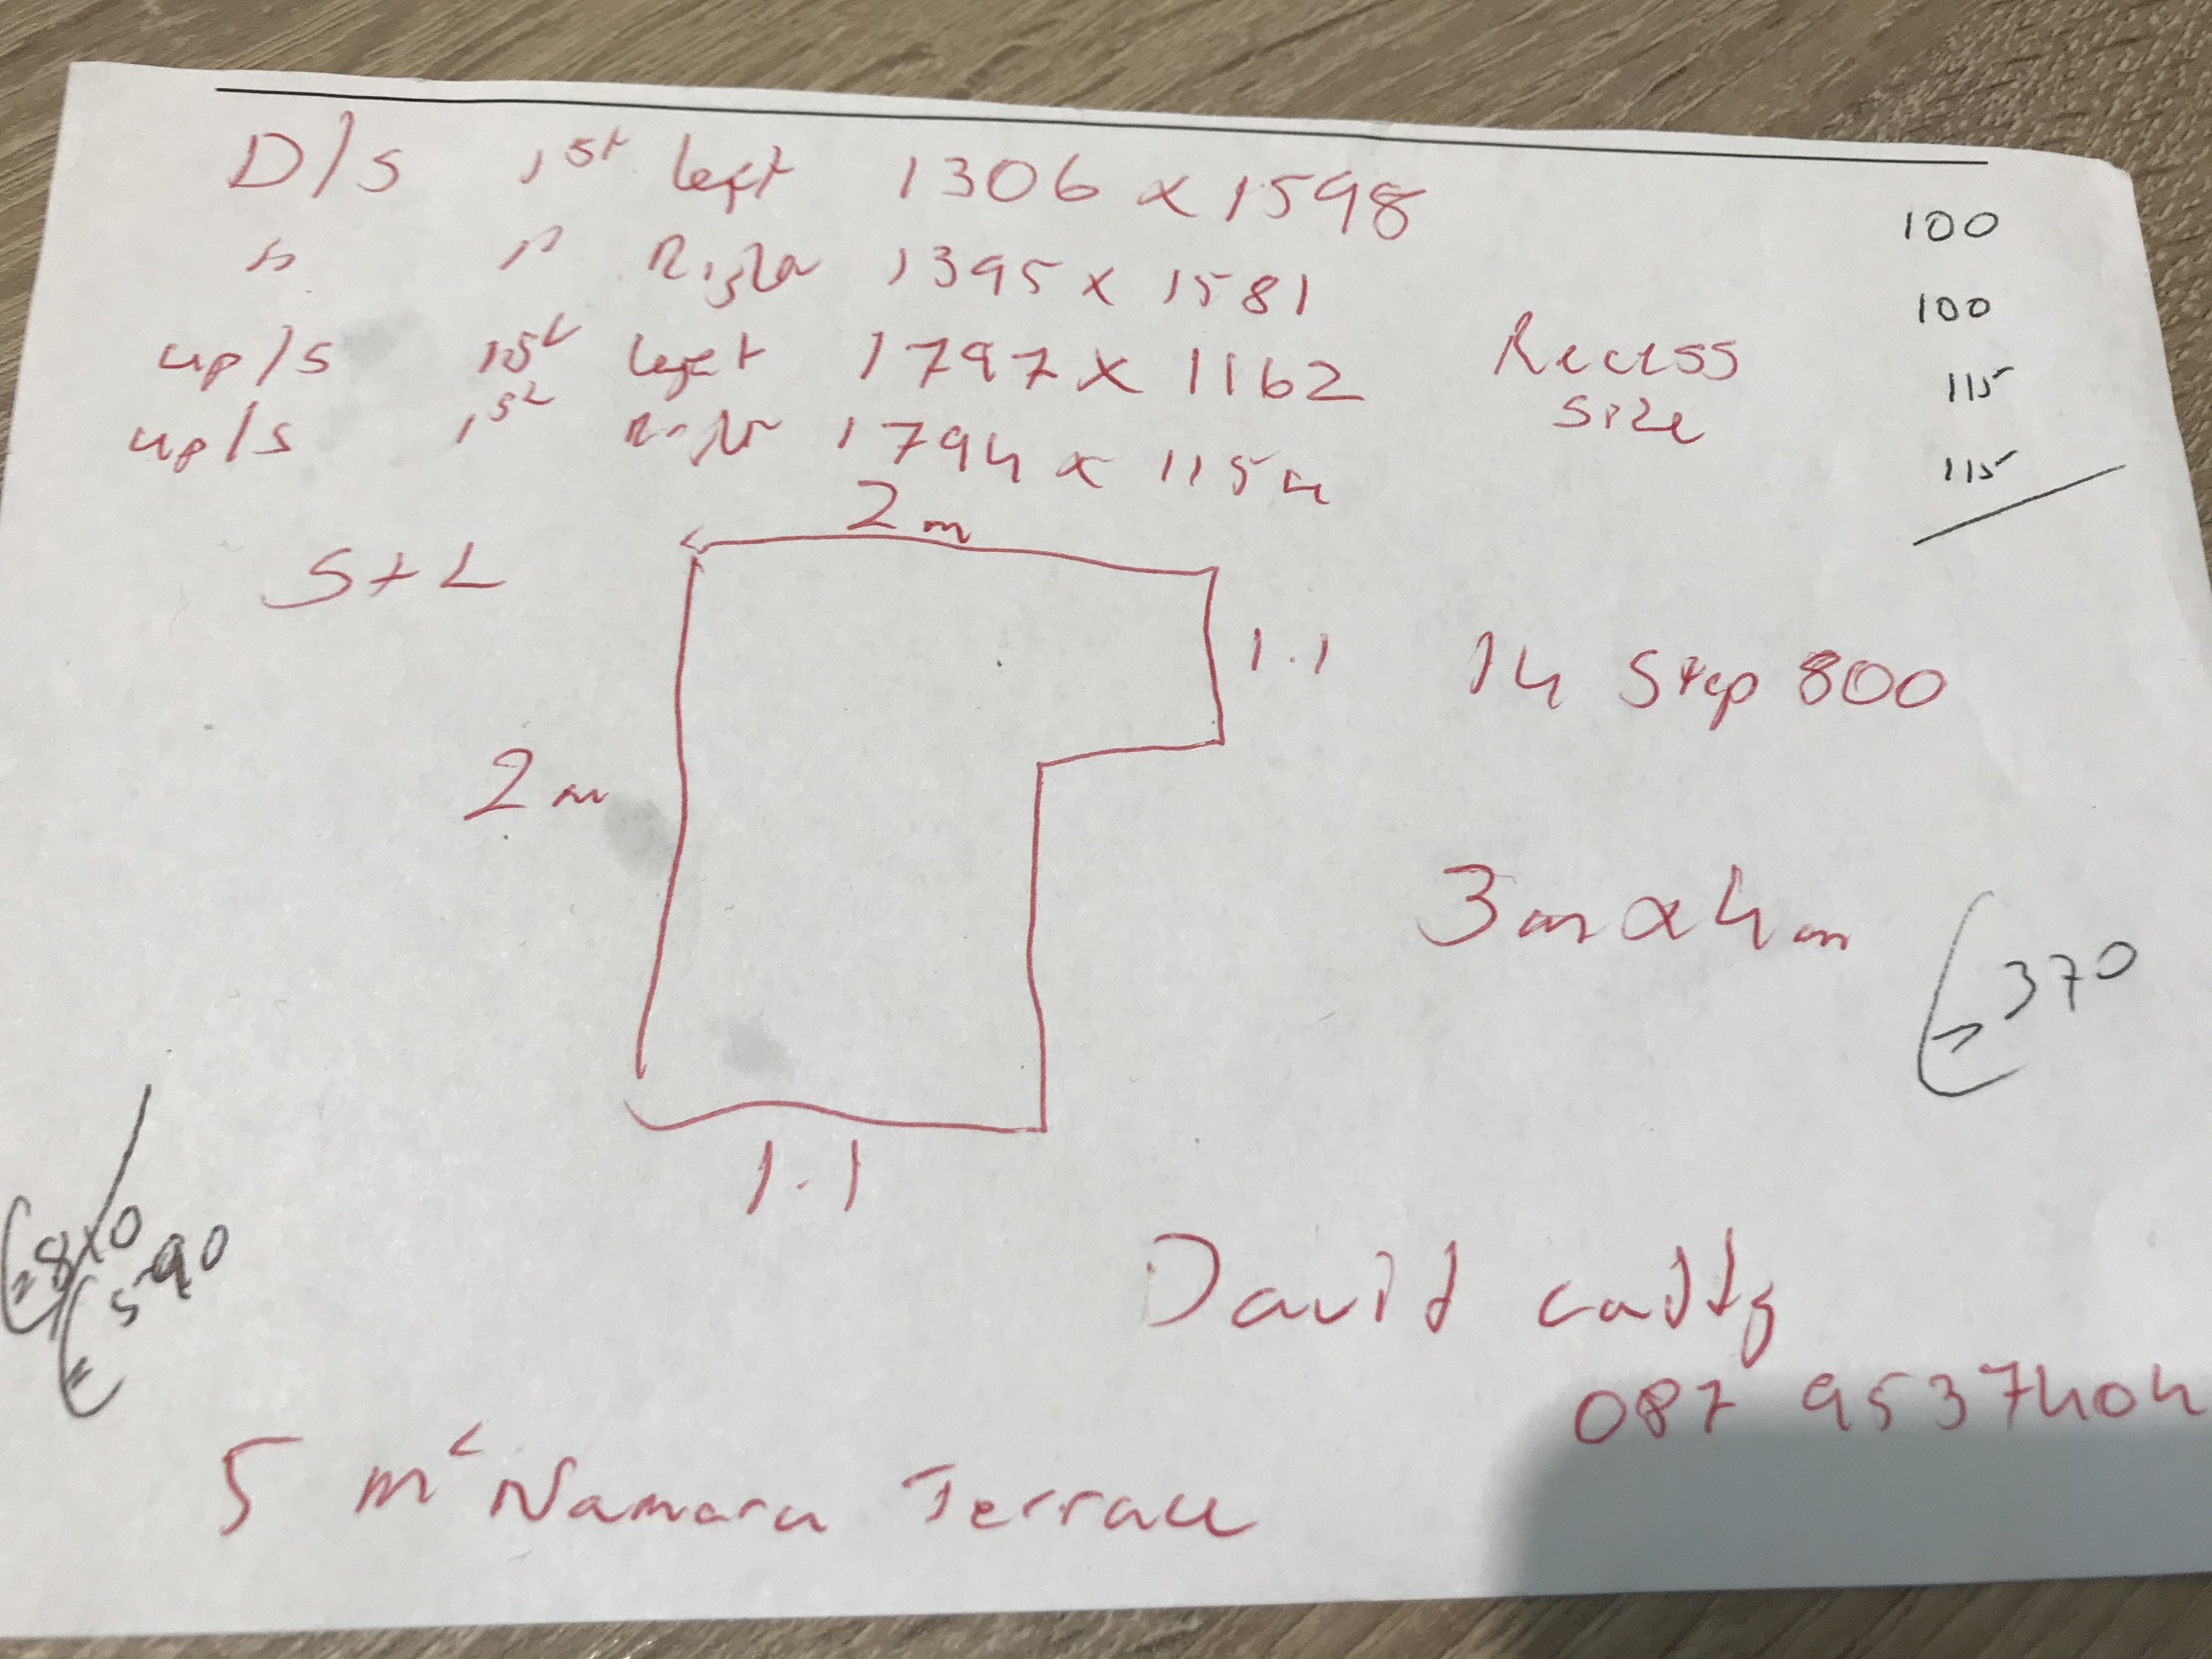 D/S 1st left 1306 x 1598 100
" " Right 1395 x 1581 100
up/s 1st left 1797 x 1162 Recess 115
size
up/s 1st Right 1794 x 1154 115
2m
S+L
1.1 14 Step 800
2m
3m x 4m
€370
1.1
€590
David
087 9537404
5 McNamara Terrace